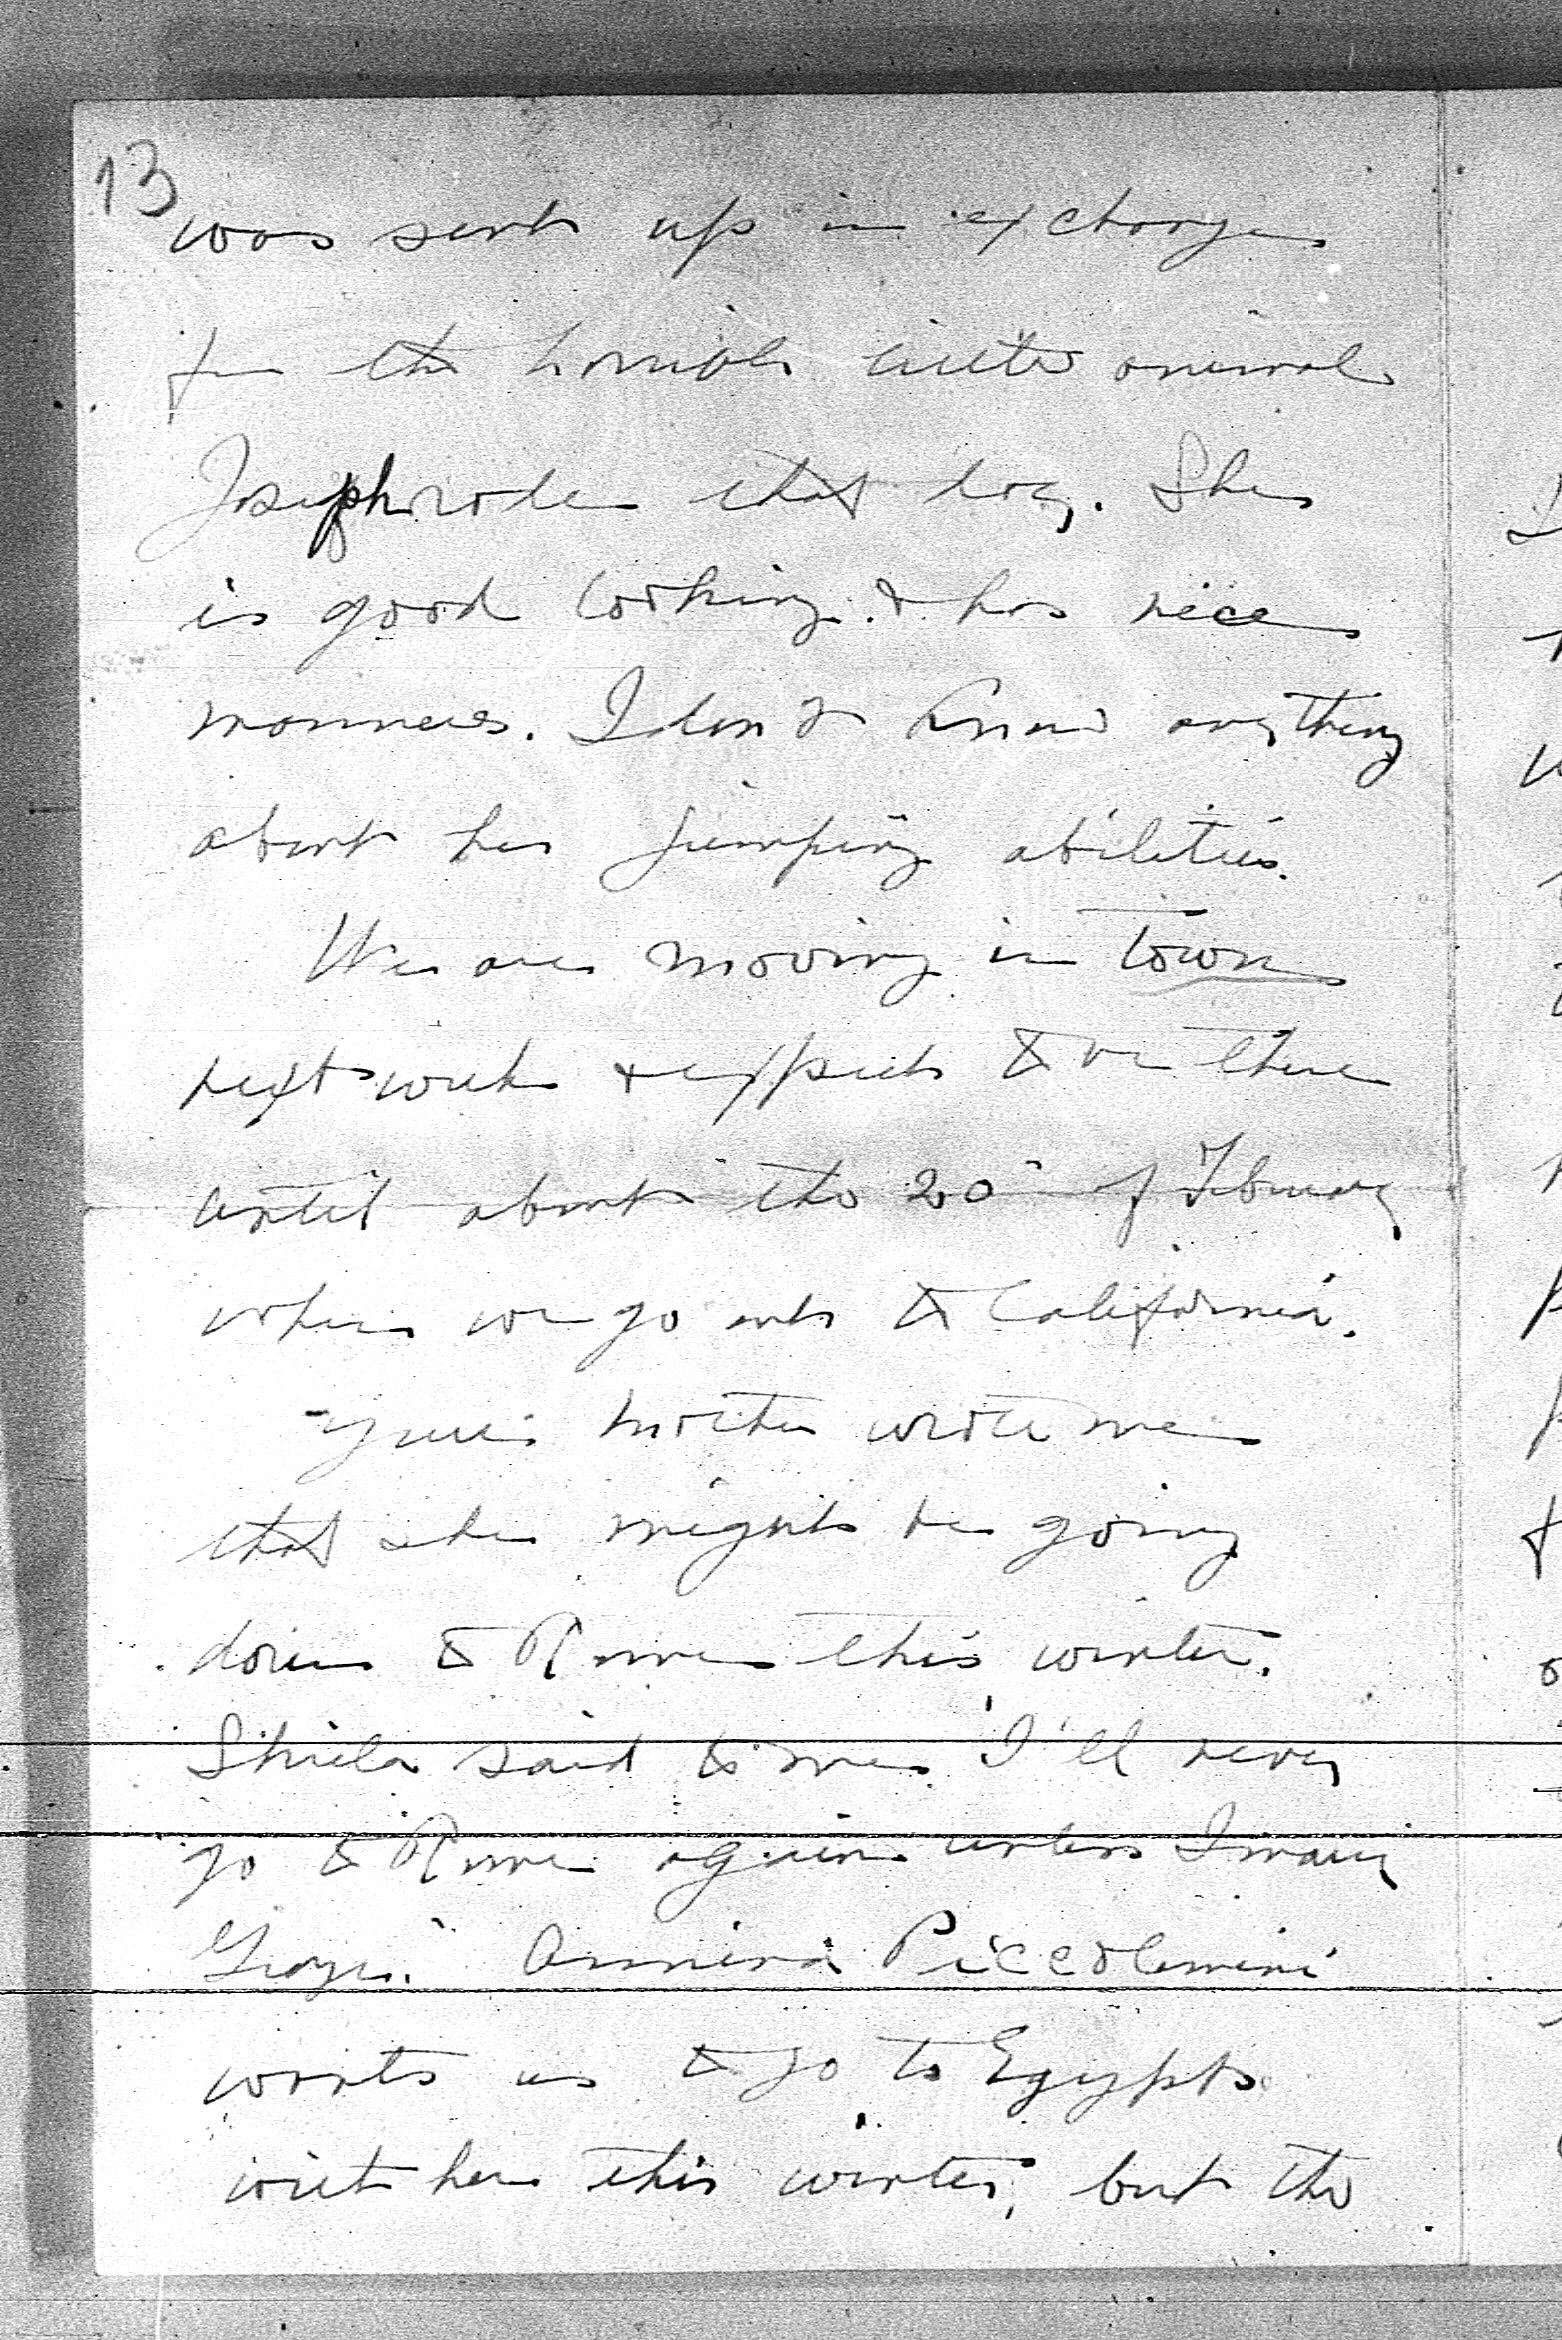 13
was sent up in exchange
for the horrible little animal
Joseph rode that day. She
is good looking & has nice
manners. I don't know anything
about her jumping abilities.
We are moving in town
next week & expect to be there
until about the 20 of February
when we go out to California.
Your mother wrote me
that she might be going
down to Rome this winter.
Shiela said to me "I'll never
go to Rome again unless I marry
Annina Piccolomini
wants us to go to Egypt
with her this winter, but the